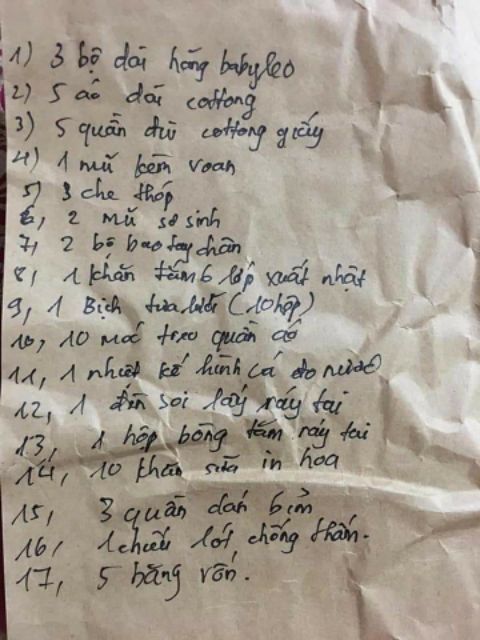 1) 3 bộ dài hãng babyleo
2) 5 áo dài cottong
3) 5 quần đùi cottong giấy
4) 1 mũ kèm voan
5) 3 che thóp
6, 2 mũ sơ sinh
7, 2 bộ bao tay chân
8, 1 khăn tắm 6 lớp xuất nhật
9, 1 Bịch tưa lưỡi (10 hộp)
10, 10 móc treo quần áo
11, 1 nhiệt kế hình cá đo nước
12, 1 đèn soi lấy ráy tai
13, 1 hộp bông tăm ráy tai
14, 10 khăn sữa in hoa
15, 3 quần dán bỉm
16, 1 chiếu lót chống thấm.
17, 5 băng rốn.